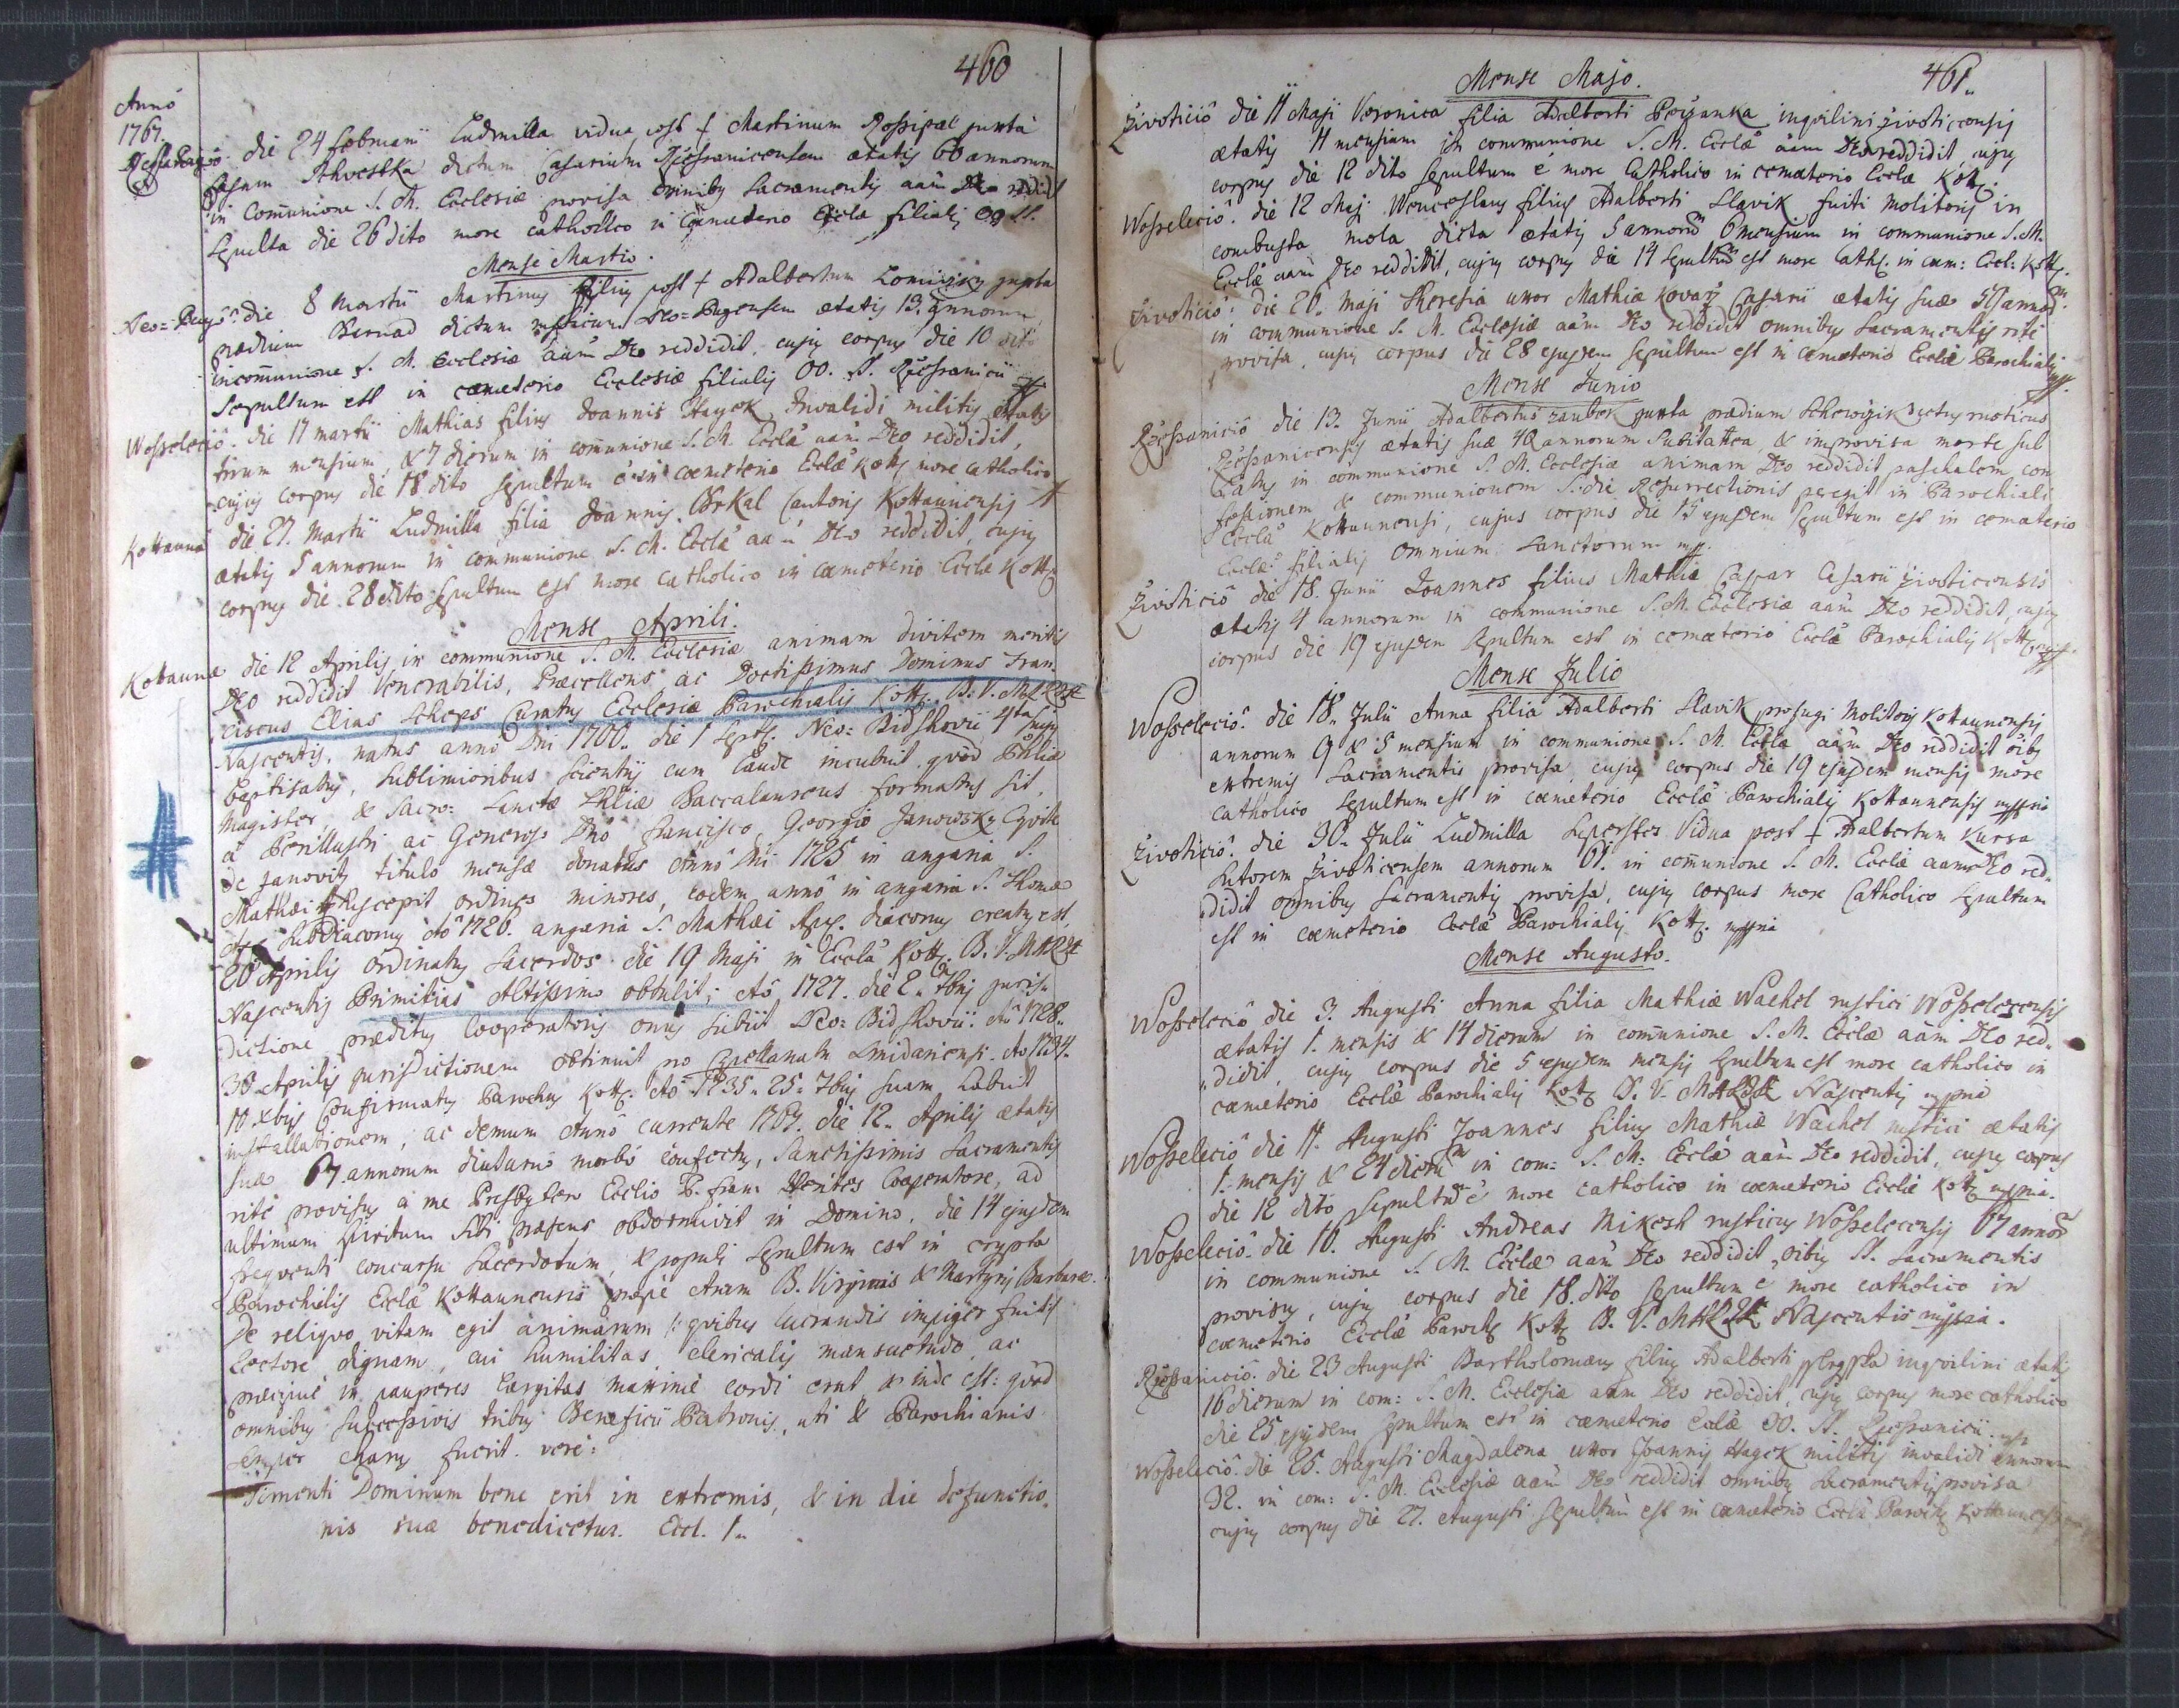 460
Anno
1767.
die 24 februarii Ludmilla vidua post † Martinum juxta
Casam Schvestka dictum Casarium ætatis 60 annorum
in Communione S. M. Ecclesiæ provisa omnibus Sacramentis aam Deo reddidit
sepulta die 26 dito more catholico in Cæmeterio Eccla filialis OO SS.
Mense Martio.
die 8 Martii Martinus filius post † Adalbertum juxta
prædium Bernad dictum rusticum ætatis 13. annorum
in communione S. M. Ecclesiæ aam Deo reddidit, cujus corpus die 10 dito
Sepultum est in cæmeterio Ecclesiæ filialis OO. SS.
Wosseleciô. die 17 martii Mathias filius Joannis Hayek Invalidi militis ætatis
trium mensium, & 7 dierum in comunione S. M. Eccla aam Deo reddidit,
cujus corpus die 18 dito sepultum é in cæmeterio Eccla Kott more catholico
Kottaunæ die 27. Martii Ludmilla filia Joannis Cantoris Kottaunensis
ætatis 5 annorum in communione S. M. Eccla aam Deo reddidit, cujus
corpus die 28 dito sepultum est more catholico in cæmeterio Eccla Kott
Mense Aprili.
Kotaunæ die 12 Aprilis in communione S. M. Ecclesiæ animam divitem meritis
Deo reddidit Venerabilis, Præcellens ac Doctissimus Dominus Fran-
ciscus Elias Scheps Curatus Ecclesiæ Parochialis Kott. B. V. Mariæ
Nascentis, natus anno Dni 1700. die 1 Neo-Bidshovii 4ta
baptisatus, sublimioribus scientiis cum laude incubuit quod Phliæ
Magister, & Sacro: Sanctæ Thliæ Baccalaureus formatus sit,
a Perillustri ac Generoso Dno Francisco Georgio Janowsky Equite
de Janovitz titulo mensæ donatus Anno Dni 1725 in angaria S.
Mathæi suscepit ordines minores, eodem anno in angaria S. Thomæ
Subdiaconus Ao 1726. angaria S. Mathæi Ap. diaconus creatus est,
20 Aprilis ordinatus Sacerdos die 19 Maji in Eccla Kott. B. V. Mariæ
Nascentis Primitias Altissimo obtulit; Ao 1727. die 2. 7bris juris-
dictione præditus Cooperatoris onus subiit Neo: Bidshovii. Ao 1728.
30 Aprilis jurisdictionem obtinuit pro Capellanatu Smidariensi. Ao 1734.
10 xbris Confirmatus Parochus Kott. Ao 1735. 25. 7bris suam habuit
installationem, ac demum Anno currente 1767. die 12. Aprilis ætatis
suæ 67 annorum diuturno morbo confectus, Sanctissimis Sacramentis
rite provisus a me Presbytero Cooperatore, ad
ultimum spiritum sibi præsens obdormivit in Domino, die 14 ejusdem
frequenti concursu Sacerdotum, & populi sepultum est in crypta
Parochialis Eccla Kottaunensis prope Aram B. Virginis & Martyris Barbaræ.
De reliquo vitam egit animarum /: quibus lucrandis impiger fuit :/
Rectore dignam, cui humilitas, clericalis mansuetudo, ac
præcipue in pauperes largitas maxime cordi erat & inde est: quod
omnibus successivis tribus Beneficii Patronis, uti & Parochianis
semper charus fuerit. vere:
Timenti Dominum bene erit in extremis, & in die defunctio-
nis suæ benedicetur. Eccl. 1.
461.
Mense Majo.
Zivoticiô die 11 Maji Veronica filia Adalberti inquilini Zivoticensis
ætatis 11 mensium in communione S. M. Eccla aam Deo reddidit, cujus
corpus die 12 dito sepultum é more Catholico in cemæterio Eccla Kott.
Wosseleciô. die 12 Maji Wenceslaus filius Adalberti Slavik fuiti molitoris in
combusta mola dicta ætatis 5 annorum 6 mensium in communione S. M.
Eccla aam Deo reddidit, cujus corpus die 14 sepultum est more Cath. in cæm: Eccl: Kott.
Zivoticiô. die 26. Maji Theresia uxor Mathiæ Kovarz Casarii ætatis suæ 50 annor
in communione S. M. Ecclesiæ aam Deo reddidit omnibus Sacramentis rite
provisa, cujus corpus die 28 ejusdem sepultum est in cæmeterio Ecclæ Parochialis
Mense Junio
die 13. Junii Adalbertus zaubek juxta prædium dictus rusticus
ætatis suæ 42 annorum & improvisa morte sub-
latus in communione S. M. Ecclesiæ animam Deo reddidit paschalem con-
fessionem & communionem S. die Resurrectionis peregit in Parochiali
Eccla Kottaunensi, cujus corpus die 15 ejusdem sepultum est in cemæterio
Eccla filialis omnium Sanctorum
Zivoticiô die 18. Junii Joannes filius Mathiæ Caspar Casarii Zivoticensis
ætatis 4 annorum in communione S. M. Ecclesiæ aam Deo reddidit, cujus
corpus die 19 ejusdem sepultum est in cemæterio Eccla Parochialis Kott.
Mense Julio
Wosseleciô. die 18. Julii Anna filia Adalberti Slavik profugi Molitoris Kottaunensis
annorum 9 & 5 mensium in communione S. M. Eccla aam Deo reddidit oibus
extremis Sacramentis provisa, cujus corpus die 19 ejusdem mensis more
catholico sepultum est in cæmeterio Eccla Parochialis Kottaunensis mppria
Zivoticiô. die 30. Julii Ludmilla Superstes Vidua post † Adalbertum Kursa
Sutorem Zivoticensem annorum 61. in comunione S. M. Eccla aam Deo red-
didit omnibus Sacramentis provisa, cujus corpus more Catholico sepultum
est in cæmeterio Eccla Parochialis Kott. mppria
Mense Augusto.
Wosseleciô die 3. Augusti Anna filia Mathiæ Wachel rustici Wosselecensis
ætatis 1. mensis & 14 dierum in comunione S. M. Eccla aam Deo red-
didit, cujus corpus die 5 ejusdem mensis sepultum est more catholico in
cæmeterio Eccla Parochialis Kott B. V. Mariæ Nascentis mppria
Wosseleciô die 11. Augusti Joannes filius Mathiæ Wachel rustici ætatis
1. mensis & 24 dierum in com: S. M. Eccla aam Deo reddidit, cujus corpus
die 12 dito sepultum é more catholico in cæmeterio Ecclæ Kott mppria.
Wosseleciô. die 16. Augusti Andreas Mikesh rusticus Wosselecensis 67 annor
in communione S. M. Eccla aam Deo reddidit, oibus SS. Sacramentis
provisus, cujus corpus die 18. dito sepultum é more catholico in
cæmeterio Eccla Paroch Kott B. V. Mariæ Nascentis mppria.
die 23 Augusti Bartholomæus filius Adalberti inquilini ætatis
16 dierum in com: S. M. Ecclesiæ aam Deo reddidit, cujus corpus more catholico
die 25 ejusdem sepultum est in cæmeterio Eccla OO. SS.
Wosseleciô. die 25. Augusti Magdalena uxor Joannis Hayek militis invalidi annorum
32. in com: S. M. Ecclesiæ aam Deo reddidit omnibus Sacramentis provisa
cujus corpus die 27. Augusti sepultum est in cæmeterio Eccla Paroch